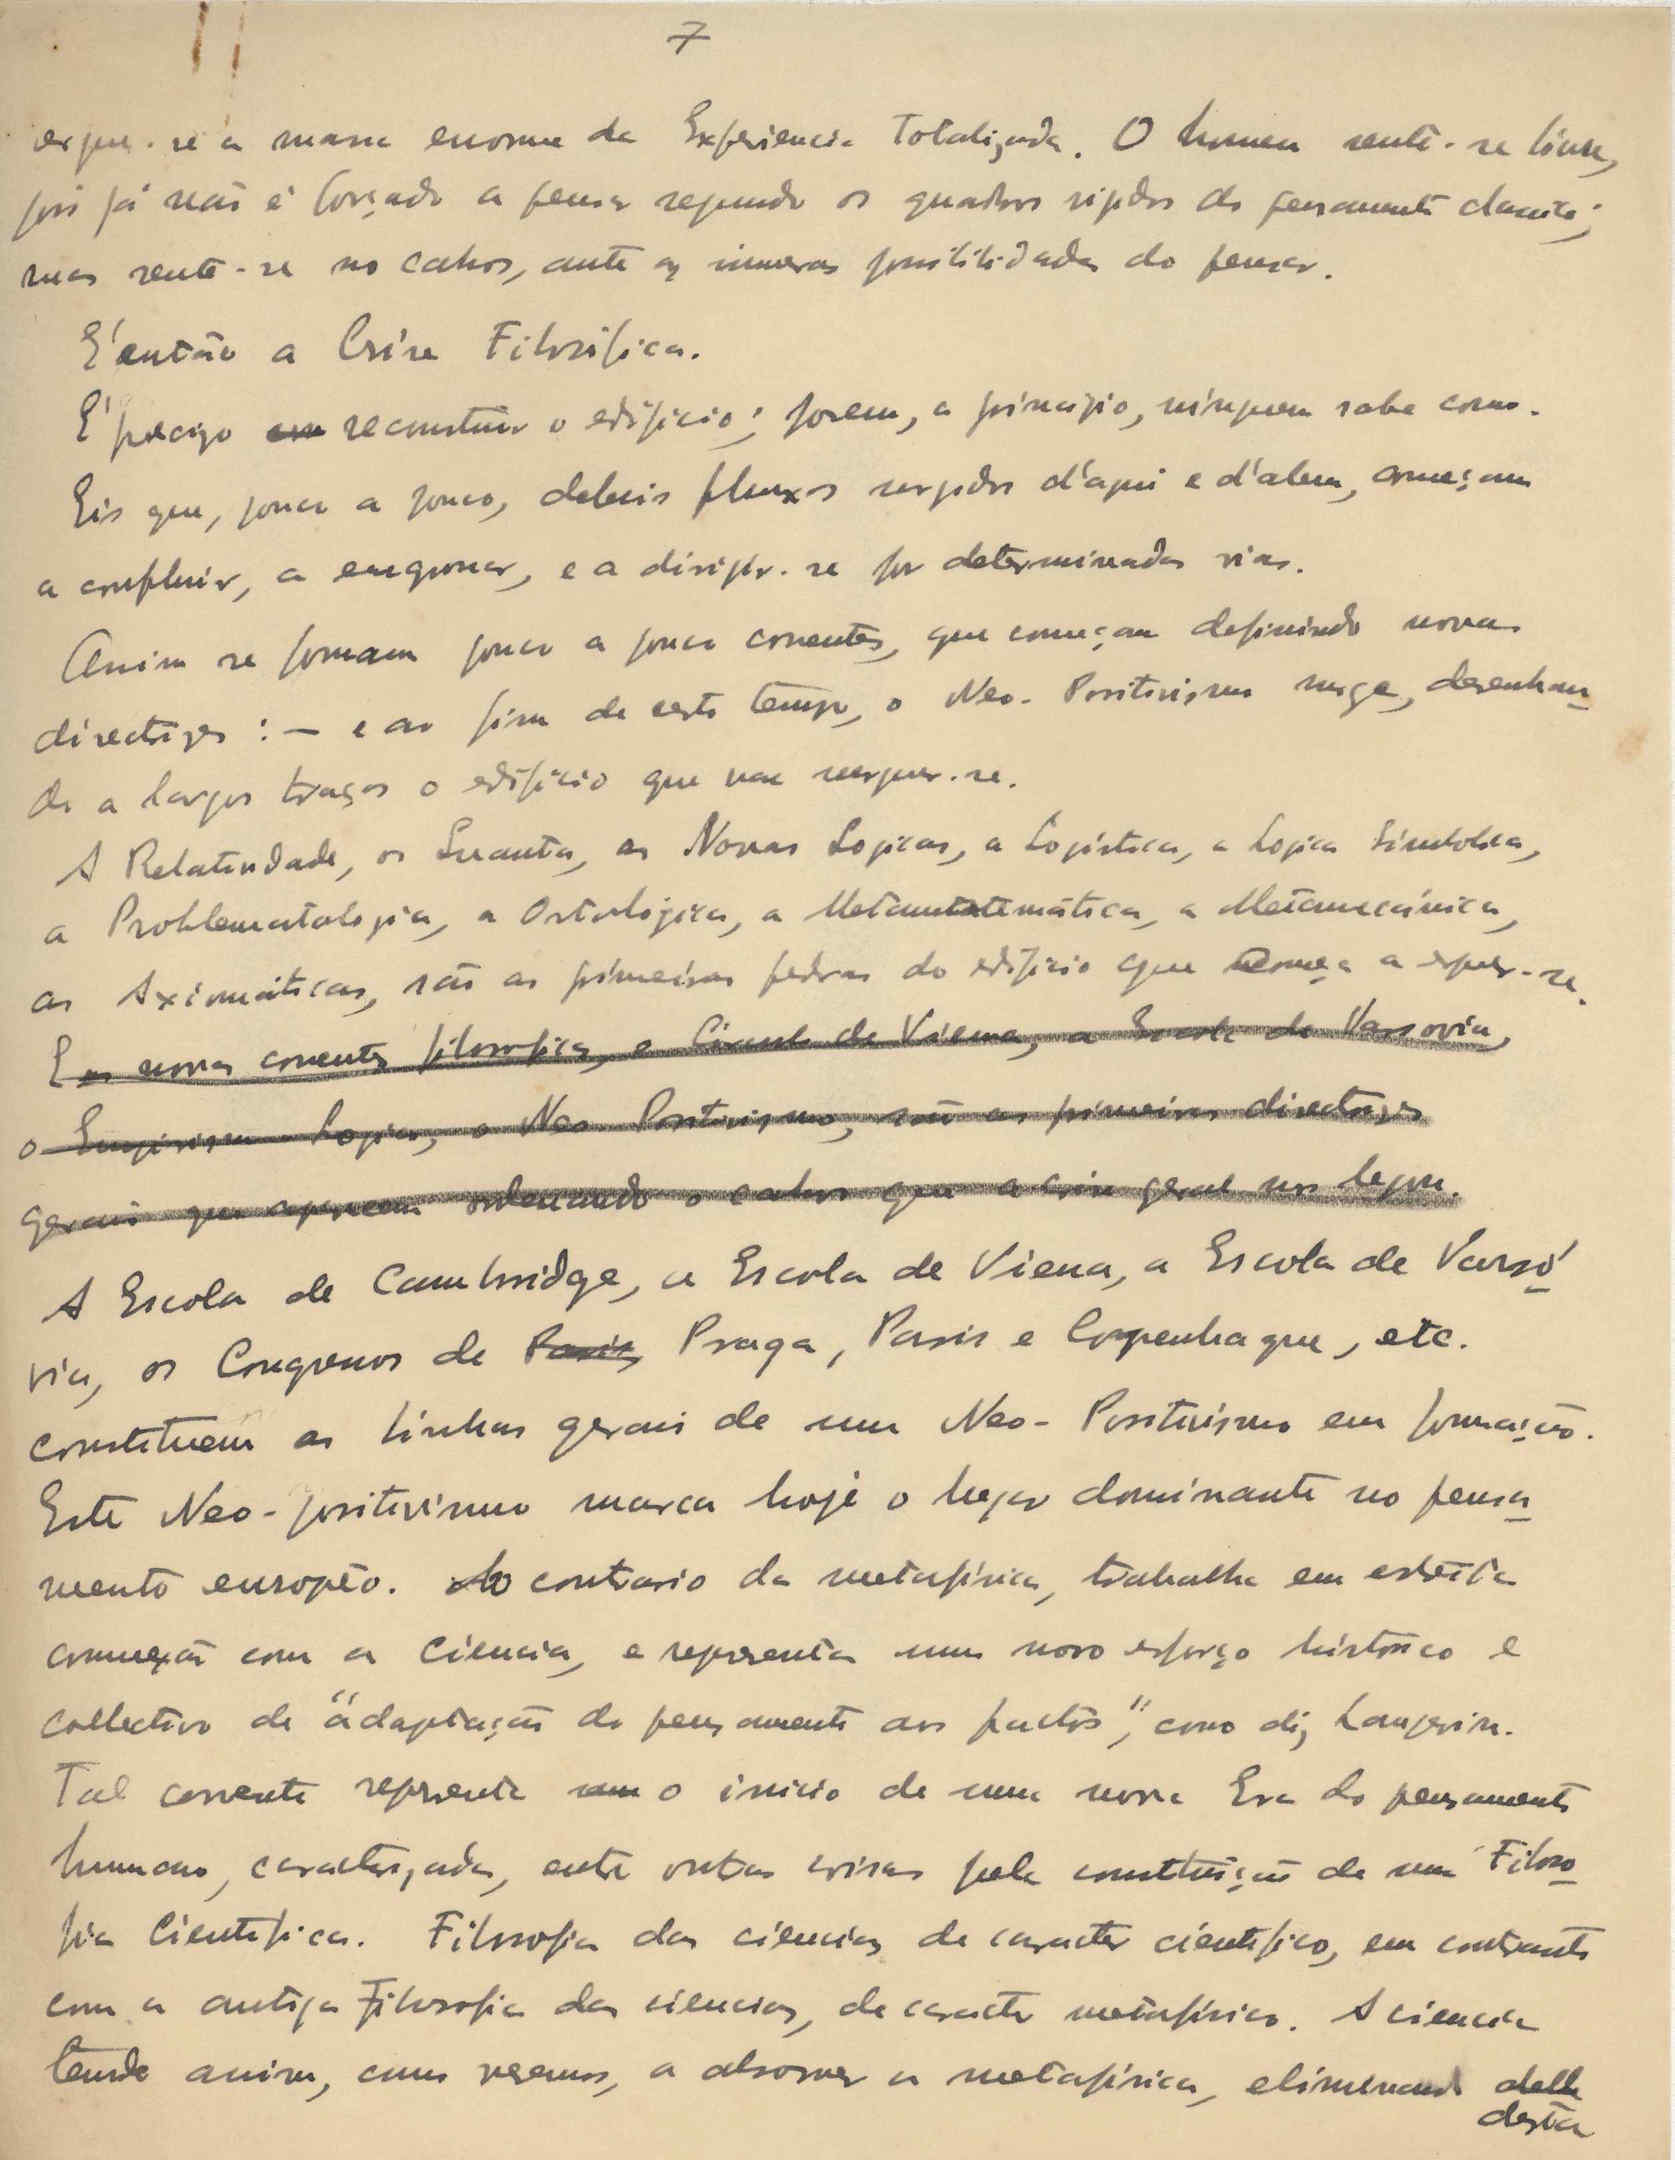 7
ergue-se a massa enorme da Experiencia Totalizada. O homem sente-se livre,
pois já não é forçado a pensar segundo os quadros rigidos do pensamento classico;
mas sente-se no cahos, ante as inumeras possibilidades do pensar.
É então a Crise Filosófica.
É precizo em reconstruir o edificio; porem, a principio, ninguem sabe como.
Eis que, pouco a pouco, debeis fluxos surgidos d'aqui e d'alem, começam
a confluir, a engrossar, e a dirigir-se por determinadas vias.
Assim se formam pouco a pouco correntes, que começam definindo novas
directrizes: — e ao fim de certo tempo, o Neo-Positivismo surge, desenhan
do a largos traços o edificio que vae reerguer-se.
A Relatividade, os Quanta, as Novas Logicas, a Logistica, a Logica Simbolica,
a Problematologia, a Ontológica, a Metamatemática, a Metamecánica,
as Axiomáticas, são as primeiras pedras do edificio que começa a erguer-se.
E as novas correntes filosoficas, o Circulo de Viena, a Escola de Varsovia,
o Empirismo Logico, o Neo-Positivismo, são as primeiras directrizes
gerais que aparecem ordenando o cahos que a crise geral nos legou.
A Escola de Cambridge, a Escola de Viena, a Escola de Varsó
via, os Congressos de Paris, Praga, Paris e Copenhague, etc.
constituem as linhas gerais de um Neo-Positivismo em formação.
Este Neo-positivismo marca hoje o lugar dominante no pensa
mento europêo. Ao contrario da metafísica, trabalha em estreita
connexão com a Ciencia, e representa um novo esforço histórico e
collectivo de "adaptação do pensamento aos factos", como diz Langevin.
Tal corrente representa um o inicio de uma nova Era do pensamento
humano, caracterizada, entre outras coisas pela constituição de uma Filoso
fia Cientifica. Filosofia das ciencias de caracter cientifico, em contraste
com a antiga Filosofia das ciencias, de caracter metafísico. A ciencia
tende assim, como veremos, a absorver a metafísica, eliminando della
desta